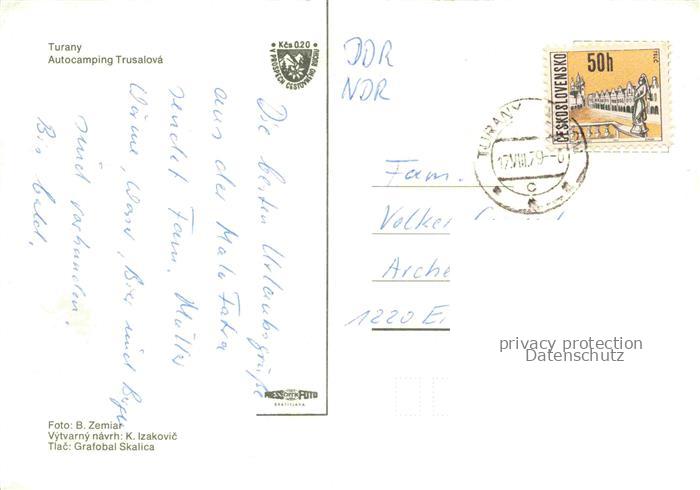 Turany
Autocamping Trusalová
Kčs 0.20
V PROSPECH CESTOVNÉHO RUCHU
Die besten Urlaubsgrüße
aus der Mala Fatra
sendet Fam. Müller
Wärme, Wasser, Bier und
sind vorhanden.
Bis bald.
DDR
NDR
50h
ČESKOSLOVENSKO
TELČ
TURANY
17.VIII.79
c
Fam.
Volker
Arche
1220 Ei
privacy protection
Datenschutz
PRESSFOTO
BRATISLAVA
Foto: B. Zemiar
Výtvarný návrh: K. Izakovič
Tlač: Grafobal Skalica